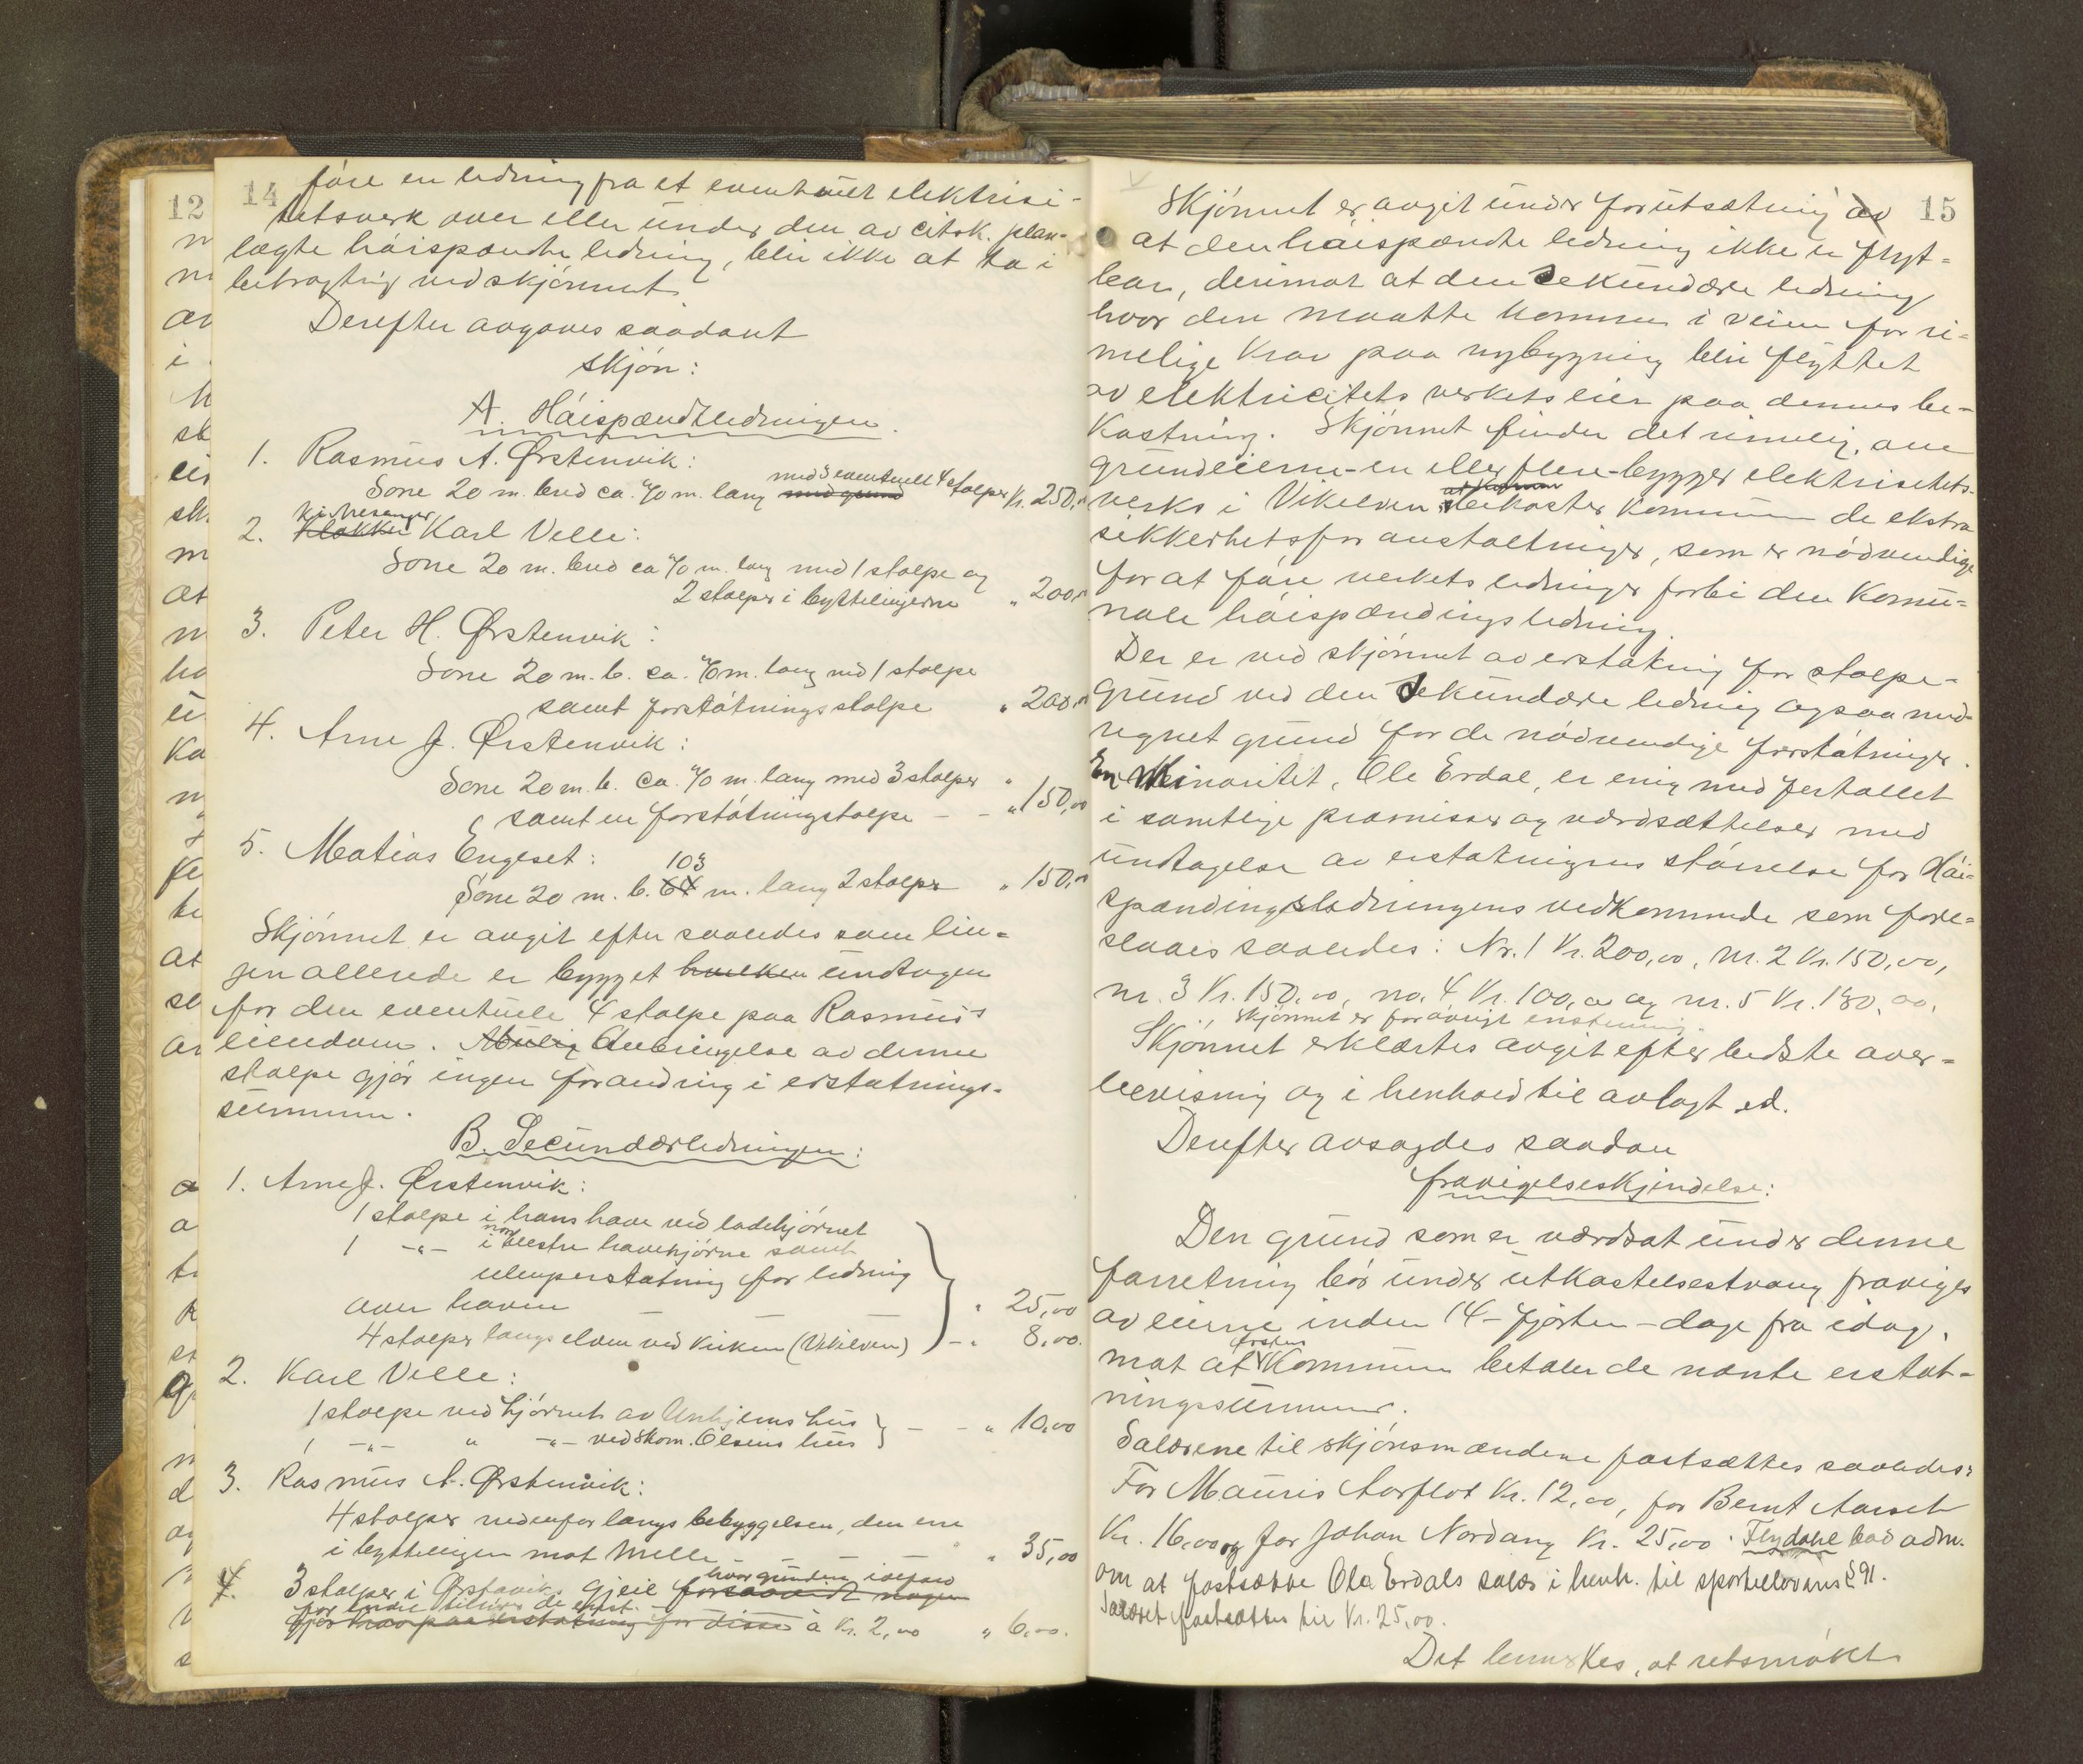 12
14
føre en ledning fra et eventuelt elektrisi-
tetsverk over eller under den av citsk. plan-
lægte høispændte ledning, blir ikke at ta i
betragtning ved skjønnet.
Derefter avgaves saadant
skjøn:
A. Høispændtledningen.
1. Rasmus A. Ørstenvik:
Sone 20 m. bred ca. 40 m. lang med 3 eventuelt 4 stolper Kr. 250,
2. Kirkesanger Karl Velle:
Sone 20 m. bred ca 40 m. lang med 1 stolpe og
2 stolper i byttelinjerne " 200,
3. Peter H. Ørstenvik:
Sone 20 m. b. ca. 40 m. lang med 1 stolpe
samt forstøtningsstolpe " 200,
4. Arne J. Ørstenvik:
Sone 20 m. b. ca. 40 m. lang med 3 stolper
samt en forstøtningstolpe - - " 150,00
5. Matias Engeset:
103
Sone 20 m. b. 64 m. lang 2 stolper " 150,
Skjønnet er avgit efter saaledes som lin-
jen allerede er bygget hvilken undtagen
for den eventuele 4 stolpe paa Rasmus's
eiendom. Mulig Anbringelse av denne
stolpe gjør ingen forandring i erstatnings-
summen.
B. Secundærledningen:
1. Arne J. Ørstenvik:
1 stolpe i hans have ved ladehjørnet
1 -"- i nordvestre havehjørne samt
ulemperstatning for ledning
over haven " 25,00
4 stolper langs elven ved kirken (Vikelven) -" 8,00.
2. Karl Velle:
1 stolpe ved hjørnet av Anhjems hus
1 -"- " -"- ved Skom. Olsens hus - - " 10,00
3. Rasmus A. Ørstenvik:
4 stolper nedenfor langs bebyggelsen, den ene
i byttelinjen mot Melle " 35,00
4. 3 stolper i Ørstavik. Gjeil forsaavidt nogen
hvorgrunden ialfald
for endel tilhører de ekst.
gjør krav paa erstatning for disse à Kr. 2,00 " 6,00.
15
Skjønnet er avgit under forutsætning av
at den høispændte ledning ikke er flyt-
bar, derimot at den sekundære ledning
hvor den maatte komme i veien for ri-
melige krav paa nybygning blir flyttet
av elektricitetsverkets eier paa dennes be-
kostning. Skjønnet finder det rimelig, om
grundeierne - en eller flere - bygger elektrisitets-
verks i Vikelven at kommunen bekoster kommunen de ekstra
sikkerhetsforanstaltninger, som er nødvendige
for at føre verkets ledninger forbi den komu-
nale høispændingsledning.
Der er ved skjønnet av erstatning for stolpe-
grund ved den sekundære ledning ogsaa med-
regnet grund for de nødvendige forstøtninger.
En Minoritet, Ole Erdal, er enig med flertallet
i samtlige præmisser og værdsættelser med
undtagelse av erstatningens størrelse for Høi-
spændingsledningens vedkommende som fore-
slaaes saaledes: Nr. 1 Kr. 200,00, nr. 2 Kr. 150,00,
nr. 3 Kr. 150,00, no. 4 Kr. 100,00 og nr. 5 Kr. 130,00.
Skjønnet er forøvrigt enstemmig.
Skjønnet erklærtes avgit efter bedste over-
bevisning og i henhold til avlagt ed.
Derefter avsagdes saadan
fravigelseskjendelse:
Den grund som er værdsat under denne
forretning bør under utkastelsestvang fraviges
av eierne inden 14 - fjorten - dage fra idag,
mot at Ørsten Kommune betaler de nævnte erstat-
ningssummer.
Salærene til skjønsmændene fastsættes saaledes:
For Mauris Aarflot Kr. 12,00, for Bernt Aarset
Kr. 16,00 og for Johan Nordang Kr. 25,00. Flydahl bad adm.
om at fastsætte Ola Erdals salær i henh. til sportellovens § 91.
Salæret fastsættes til Kr. 25,00.
Det bemerkes, at retsmøtet